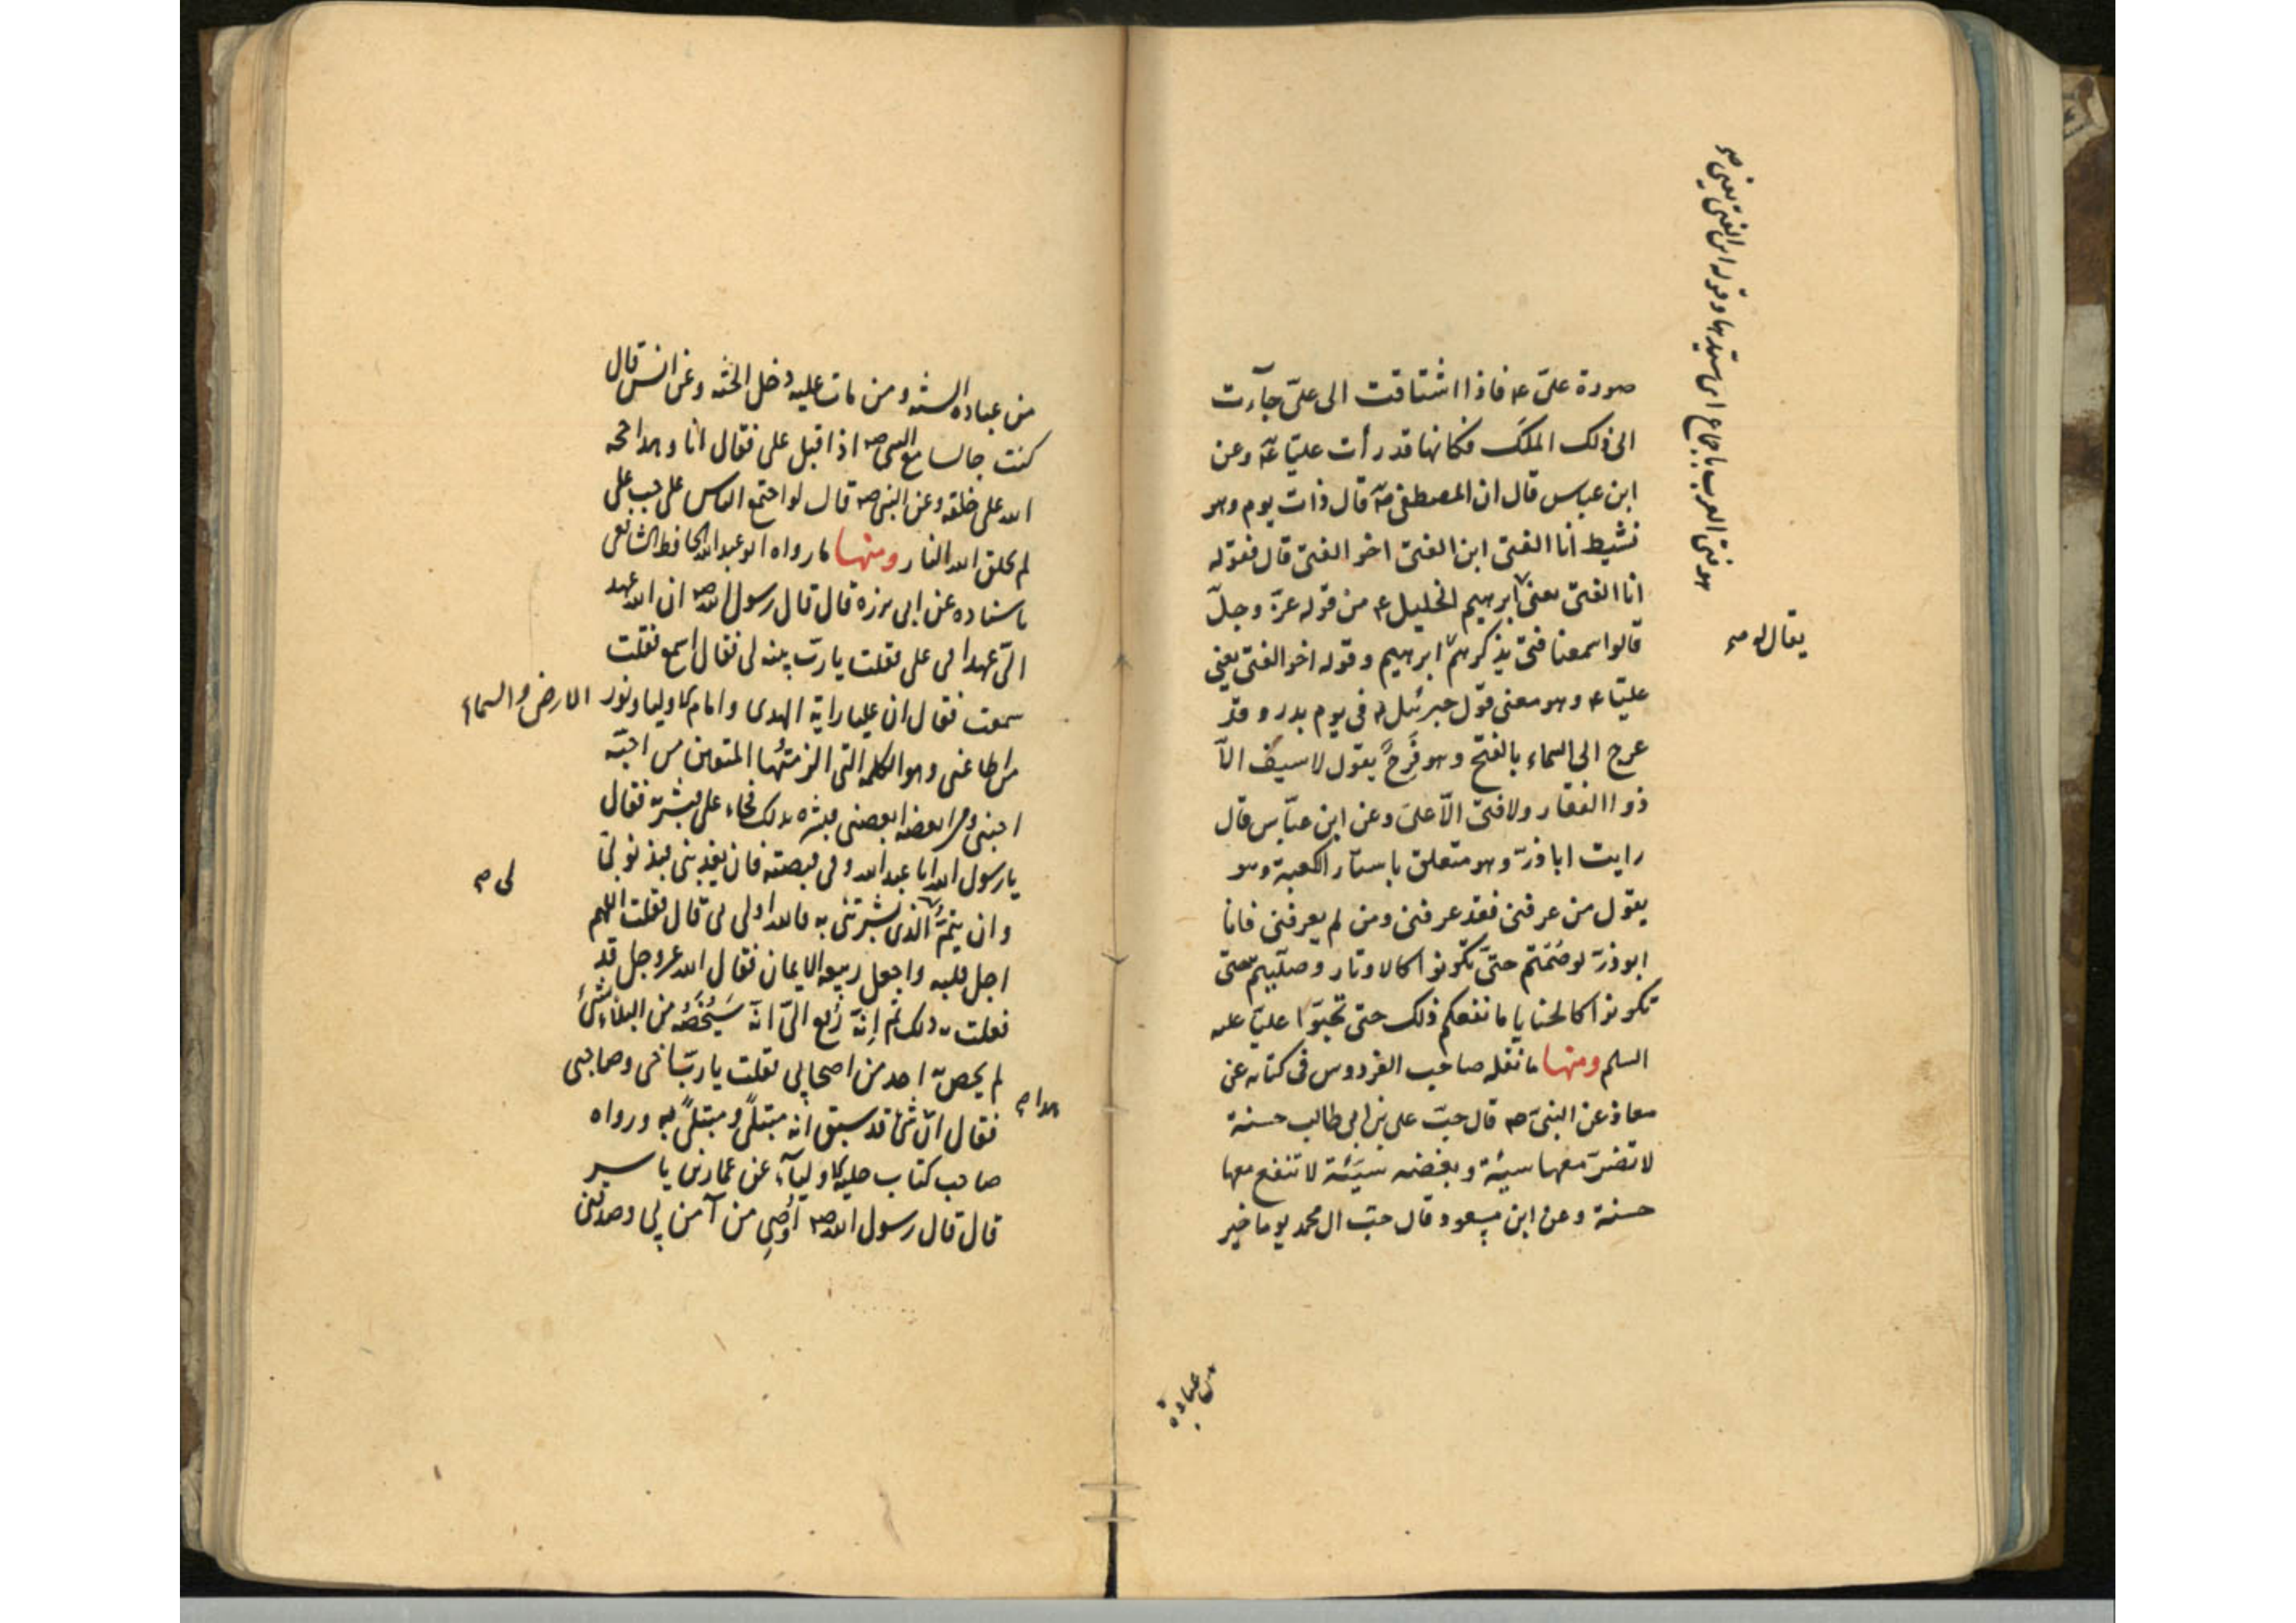 صورة علیّ ع فاذا اشتاقت الی علیّ جآءت
الی ذلک الملک فکانها قد رأت علیّا ع وعن
ابن عباس قال ان المصطفی ص قال ذات یوم وهو
نشیط انا الفتی ابن الفتی اخو الفتی قال فقوله
انا الفتی یعنی ابرهیم الخلیل ع من قوله عزّ وجلّ
قالوا سمعنا فتی یذکرهم ابرهیم وقوله اخو الفتی یعنی
علیّا ع وهو معنی قول جبرئیل ع فی یوم بدر وقد
عرج الی السماء بالفتح وهو فَرِحٌ یقول لا سیف الّا
ذوا الفقار ولا فتی الّا علی وعن ابن عبّاس قال
رایت اباذرّ وهو متعلق باستار الکعبة وهو
یقول من عرفنی فقد عرفنی ومن لم یعرفنی فانا
ابوذرّ لو صُمتم حتّی تکونوا کالاوتار وصلّیتم حتی
تکونوا کالحنایا ما نفعکم ذلک حتی تحبّوا علیّا علیه
السلم ومنها ما نقله صاحب الفردوس فی کتابه عن
معاذ عن النبیّ ص قال حبّ علی بن ابی طالب حسنة
لا تضرّ معها سیئة وبغضه سیّئة لا تنفع معها
حسنة وعن ابن مسعود قال حبّ ال محمد یوما خیر
هو فتی العرب باجماع ای سیّدها وقوله ابن الفتی یعنی ص
یقال له ص
من عبادة
من عبادة السنه ومن مات علیه دخل الجنه وعن انس قال
کنت جالسا مع النبی ص اذ اقبل علی فقال انا وهذا حجه
الله علی خلقه وعن النبی ص قال لو اجتمع الناس علی حب علی
لم یخلق الله النار ومنها ما رواه ابو عبدالله الحافظ الشافعی
باسناده عن ابی برزه قال قال رسول الله ص ان الله عهد
الیّ عهدا فی علی فقلت یا ربّ بینه لی فقال اسمع فقلت
سمعت فقال ان علیا رایة الهدی وامام الاولیا ونور
من اطاعنی وهو الکلمه التی الزمتُها المتقین من احبّه
احبنی ومن ابغضه ابغضنی فبشره بذلک فجاء علی فبشرته فقال
یا رسول الله انا عبد الله وفی قبضته فان یعذبنی فبذنوبی
وان یتمّ الذی بشرتنی به فالله اولی بی قال فقلت اللهم
اجل قلبه واجعل ربیعه الایمان فقال الله عز وجل قد
فعلت به ذلک ثم اِنّه رُفِع الیّ انّه سَیَخُصُّه من البلاء بشئ
لم یخصّ به احد من اصحابی فقلت یا ربّ اخی وصاحبی
فقال انّ شئ قد سبق انه مبتلیً ومبتلیً به ورواه
صاحب کتاب حلیة الاولیآء عن عمار بن یاسر
قال قال رسول الله ص اُوصِی من آمن بی وصدّقنی
الارض والسماء
لی ص
هذا ص